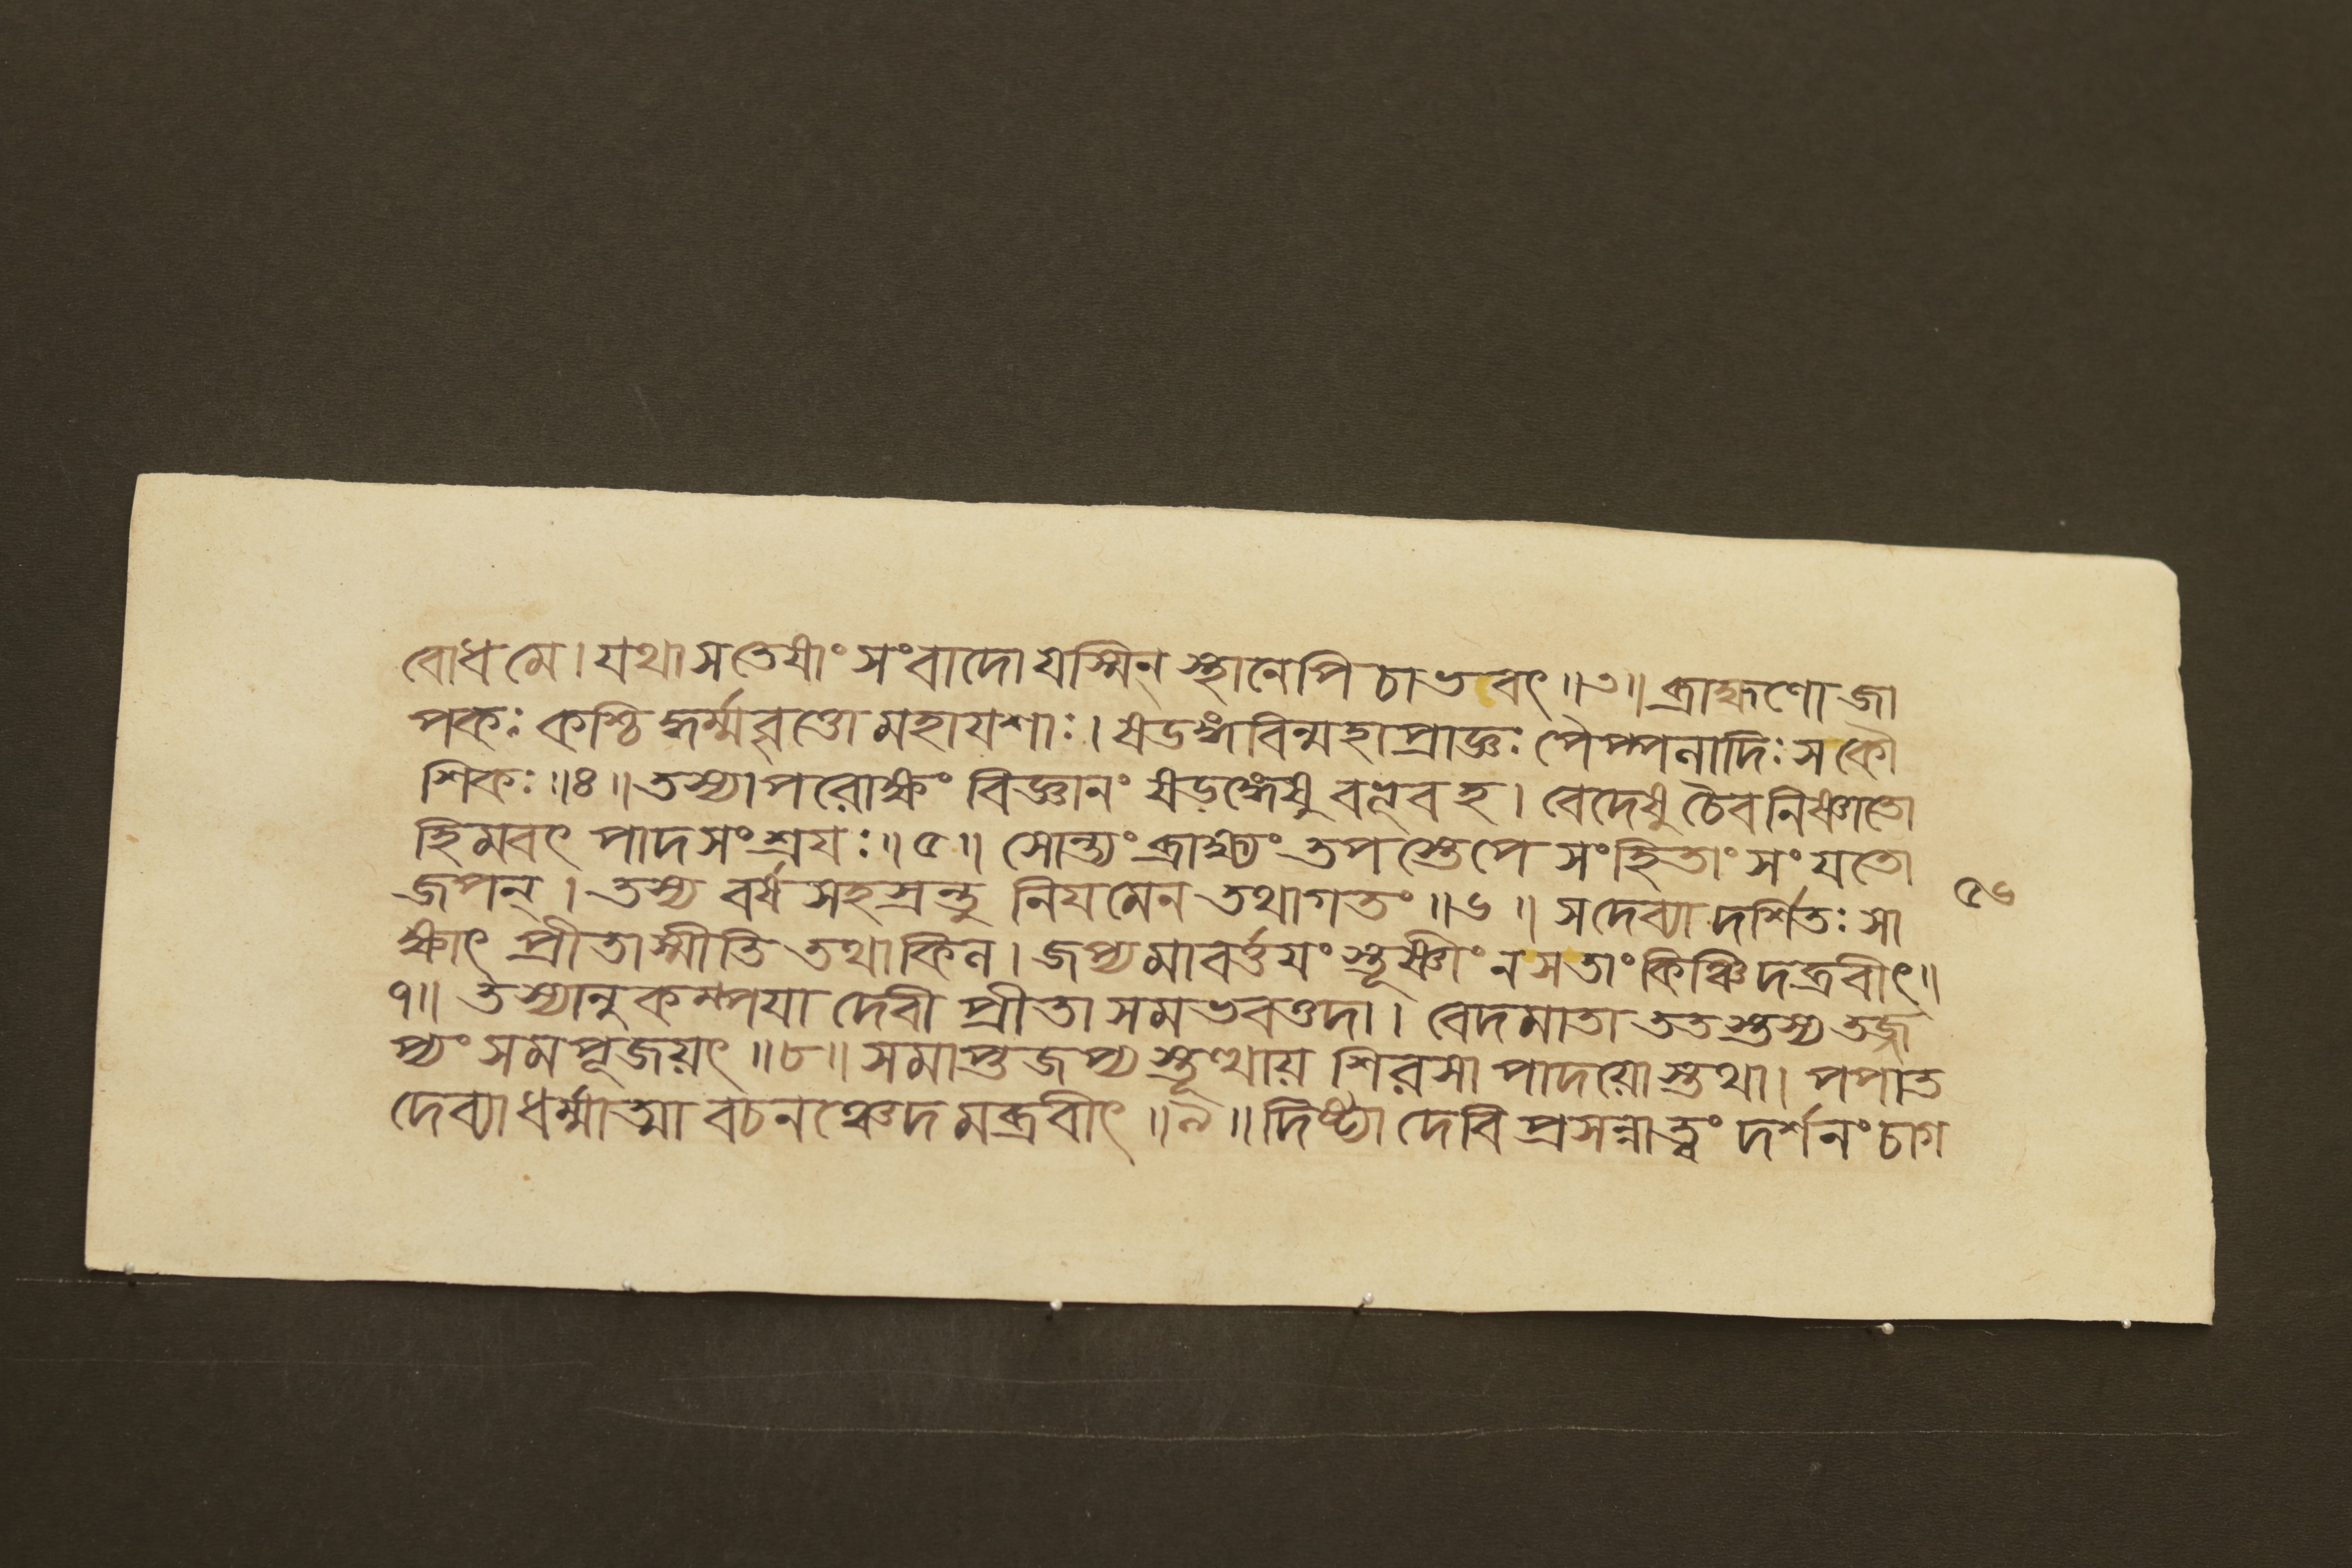 বোধ মে। যথা স তেষাং সংবাদো যস্মিন্ স্থানেপি চাভবৎ॥৩॥ ব্রাহ্মণো জা
পকঃ কশ্চিদ্ধর্ম্মবৃত্তো মহাযশাঃ। ষডঙ্গবিন্মহাপ্রাজ্ঞঃ পৈপ্পলাদিঃ স কৌ
শিকঃ॥৪॥ তস্যাপরোক্ষং বিজ্ঞানং ষড়ঙ্গেষু বভূব হ। বেদেষু চৈব নিষ্ণাতো
হিমবৎ পাদসংশ্রযঃ॥৫॥ সোন্ত্যং ব্রাহ্ম্যং তপস্তেপে সংহিতাং সংযতো
জপন্। তস্য বর্ষসহস্রন্তু নিযমেন তথাগতং॥৬॥ স দেব্যা দর্শিতঃ সা
ক্ষাৎ প্রীতাস্মীতি তথা কিল। জপ্যমাবর্ত্তযংস্তূষ্ণীং ন স তাং কিঞ্চিদব্রবীৎ॥
৭॥ তস্যানুকম্পযা দেবী প্রীতা সমভবত্তদা। বেদমাতা ততস্তস্য তজ্জ
প্যং সমপূজয়ৎ॥৮॥ সমাপ্তজপ্যস্তূত্থায় শিরসা পাদয়োস্তথা। পপাত
দেব্যা ধর্ম্মাত্মা বচনঞ্চেদমব্রবীৎ॥৯॥ দিষ্ট্যা দেবি প্রসন্না ত্বং দর্শনং চাগ
৫৬